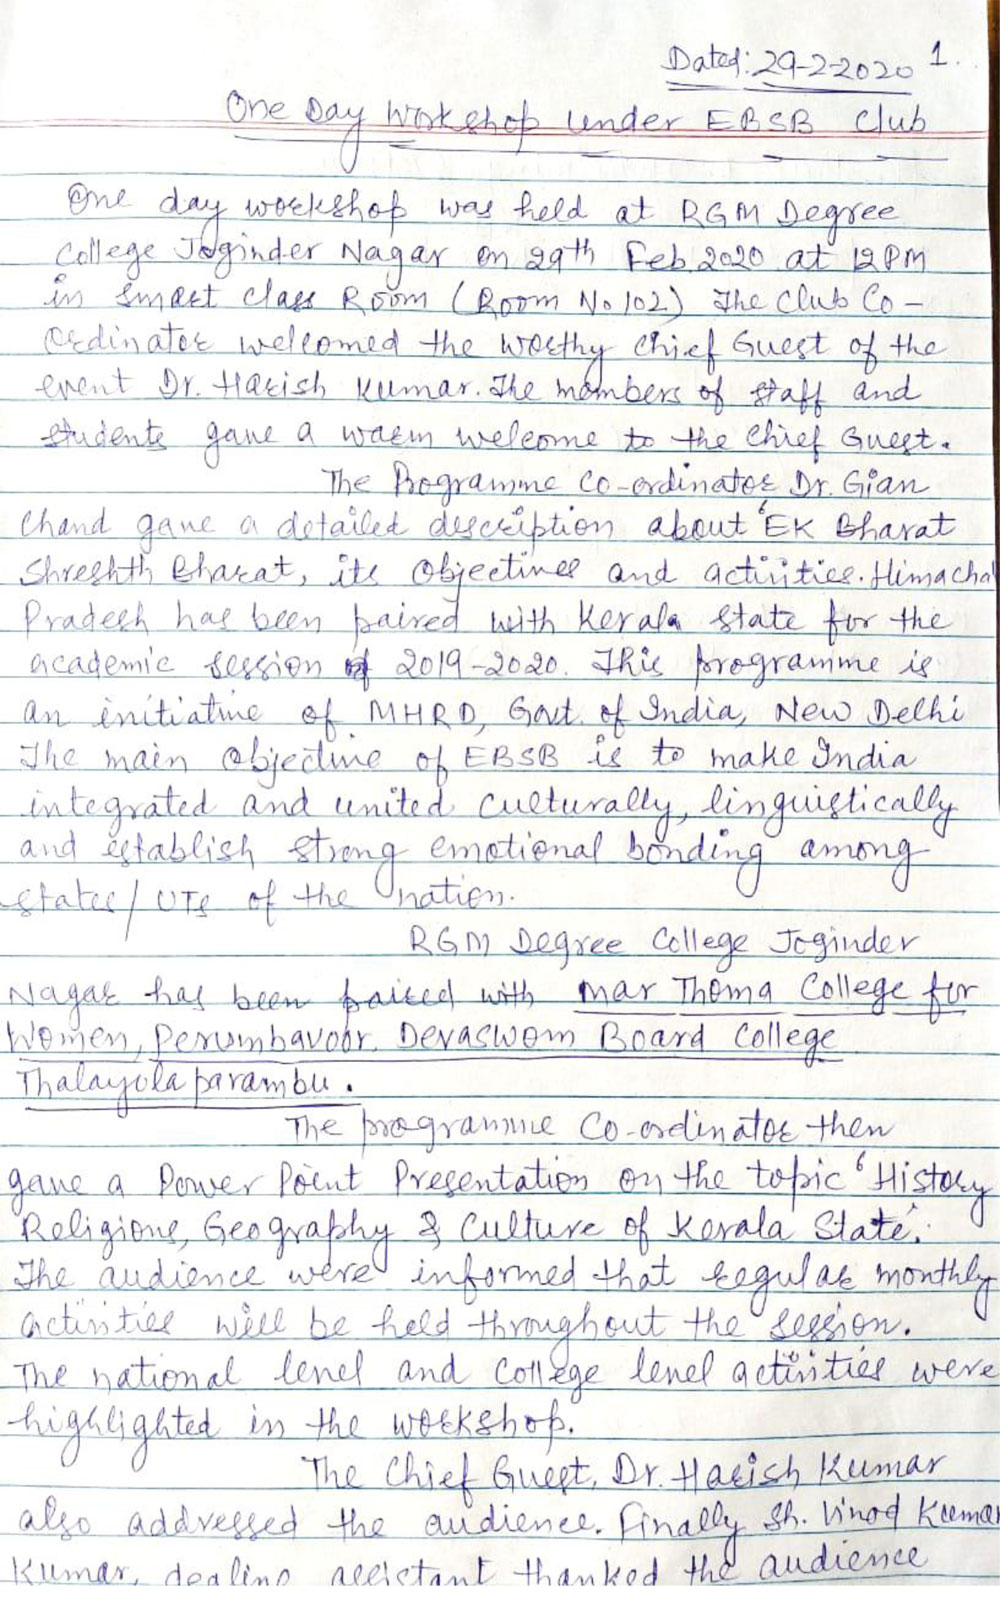 Dated: 29-2-2020 1.
One Day Workshop under EBSB Club
One day workshop was held at RGM Degree
College Joginder Nagar on 29th Feb. 2020 at 12 PM
in Smart Class Room (Room No 102) The Club Co-
ordinator welcomed the worthy Chief Guest of the
event Dr. Harish Kumar. The members of staff and
students gave a warm welcome to the Chief Guest.
The Programme Co-ordinator Dr. Gian
Chand gave a detailed description about 'EK Bharat
Shreshth Bharat, its objectives and activities. Himachal
Pradesh has been paired with Kerala State for the
academic session of 2019-2020. This programme is
an initiative of MHRD, Govt. of India, New Delhi
The main objective of EBSB is to make India
integrated and united culturally, linguistically
and establish strong emotional bonding among
states/UTs of the nation.
RGM Degree College Joginder
Nagar has been paired with Mar Thoma College for
Women, Perumbavoor. Devaswom Board College
Thalayolaparambu.
The programme Co-ordinator then
gave a Power Point Presentation on the topic 'History
Religions, Geography & Culture of Kerala State'.
The audience were informed that regular monthly
activities will be held throughout the session.
The national level and College level activities were
highlighted in the workshop.
The Chief Guest, Dr. Harish Kumar
also addressed the audience. Finally Sh. Vinod Kumar
Kumar, dealing assistant thanked the audience